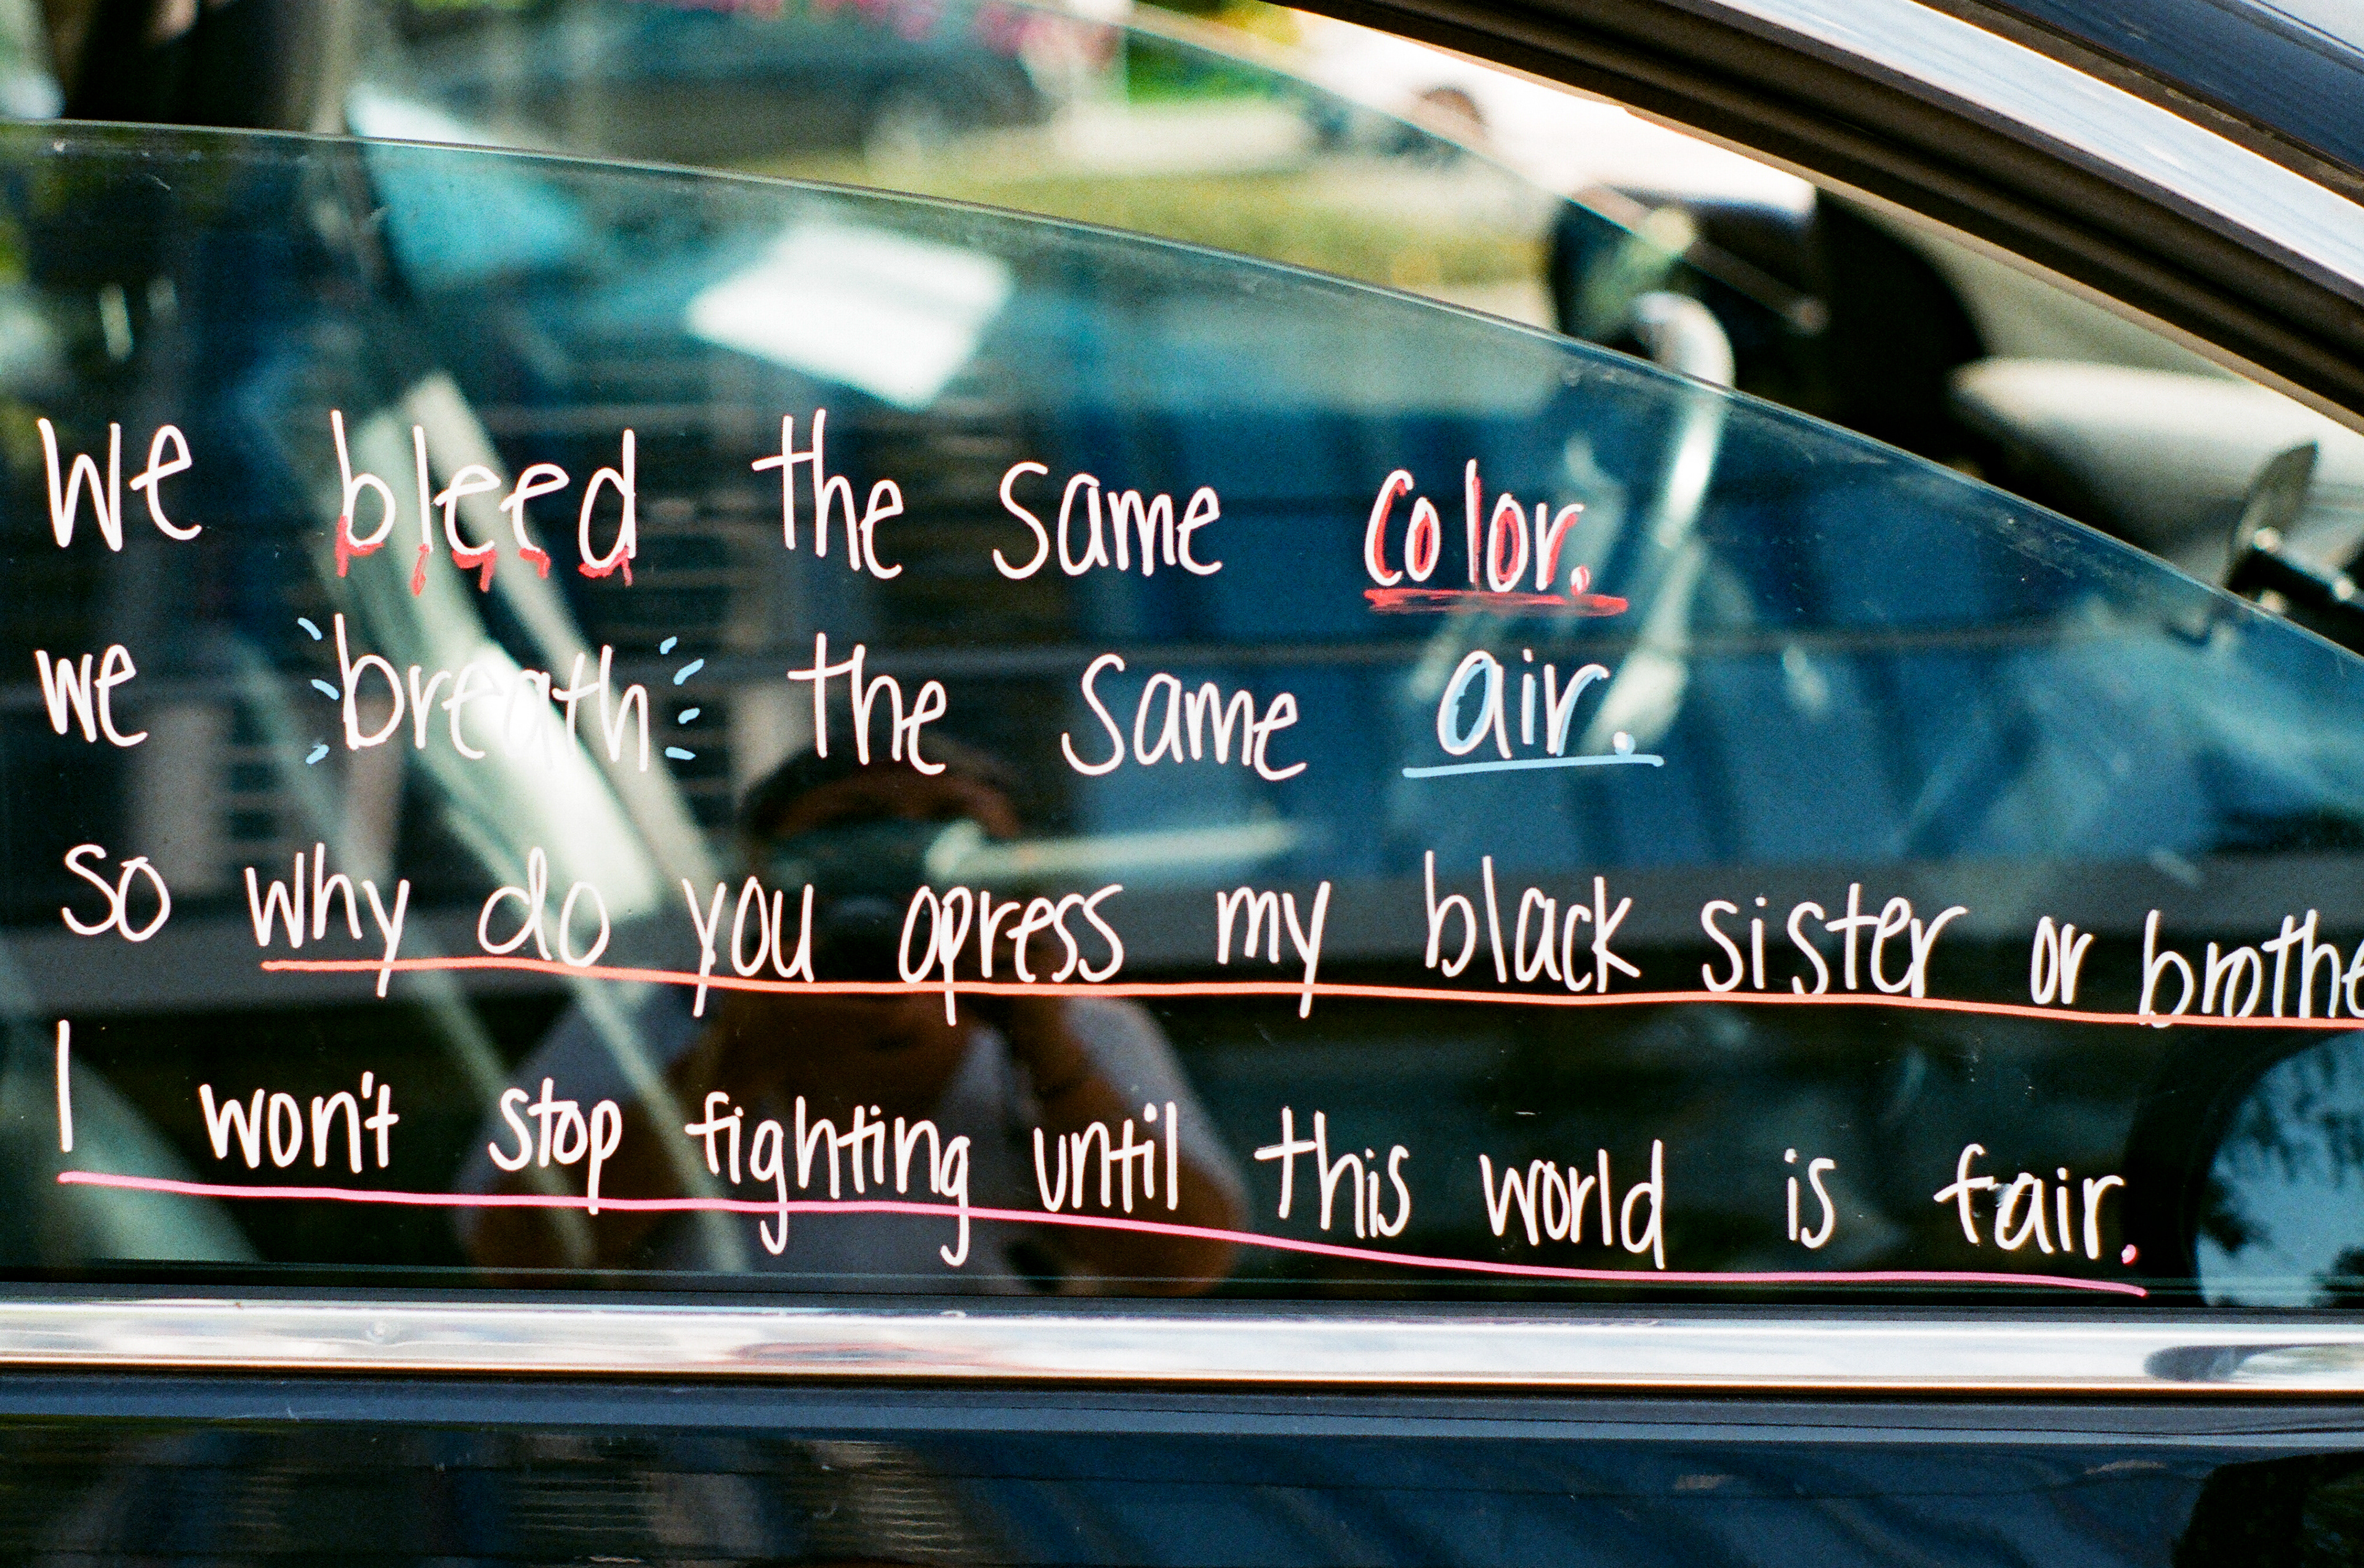 We bleed the same color.
we breath the same air.
so why do you opress my black sister or brothe
I won't stop fighting until this world is fair.